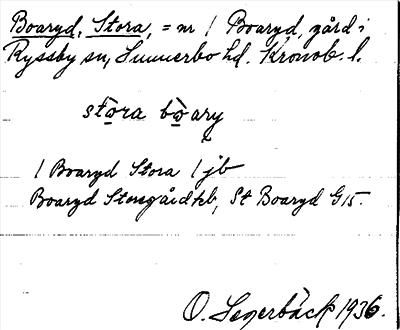 Boaryd, Stora, = nr 1 Boaryd, gård i
Ryssby sn, Sunnerbo hd. Kronob. l.
stora bòary
1 Boaryd Stora 1 jb
Boaryd Storegård hb, St Boaryd G15.
O. Segerbäck 1936.